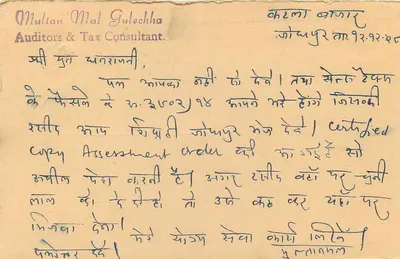 Multan Mal Gulechha
Auditors & Tax Consultant.
कटला बाजार
जोधपुर ता. १२-१२-५८
श्री युत धनराजजी,
पत्र आपका नहीं सो देवें। तथा सेल्स टैक्स
के फैसले के रु. ३५०२/१४ आपने भरे होंगे जिसकी
रसीद आप जोधपुर भेज देवें। Certified
Copy Assessment Order की आ गई है सो
अपील पेश करनी है। अगर रसीद वहाँ पर चुनी
लाल को दे दी हो तो उसे कह कर यहां पर
भिजवा देना।
मेरे योग्य सेवा कार्य लिखें
पत्रोत्तर देवें।
मुल्तानमल